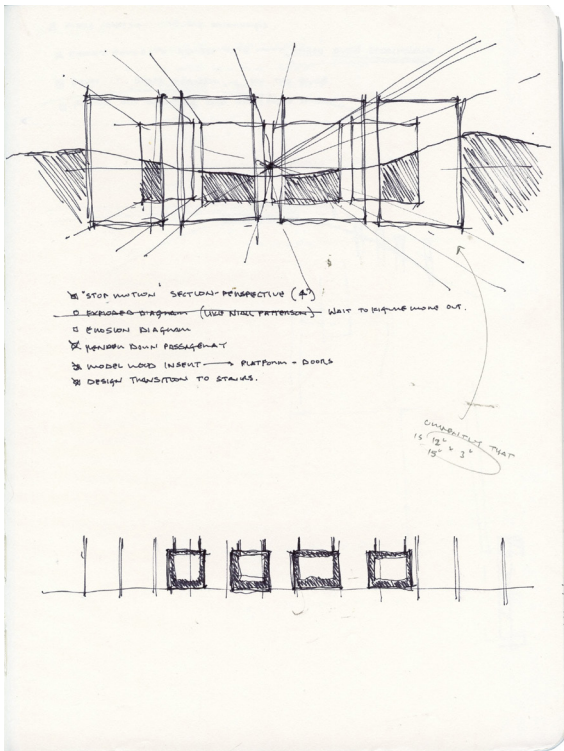 "STOP MOTION" SECTION-PERSPECTIVE (4")
EXPLODED DIAGRAM (LIKE NIALL PATTERSON) - WAIT TO FIGURE MORE OUT.
EROSION DIAGRAM
RENDER DOWN PASSAGEWAY
MODEL WOOD INSERT → PLATFORM - DOORS
DESIGN TRANSITION TO STAIRS.
CURRENTLY THAT
IS 12"
15" 3"